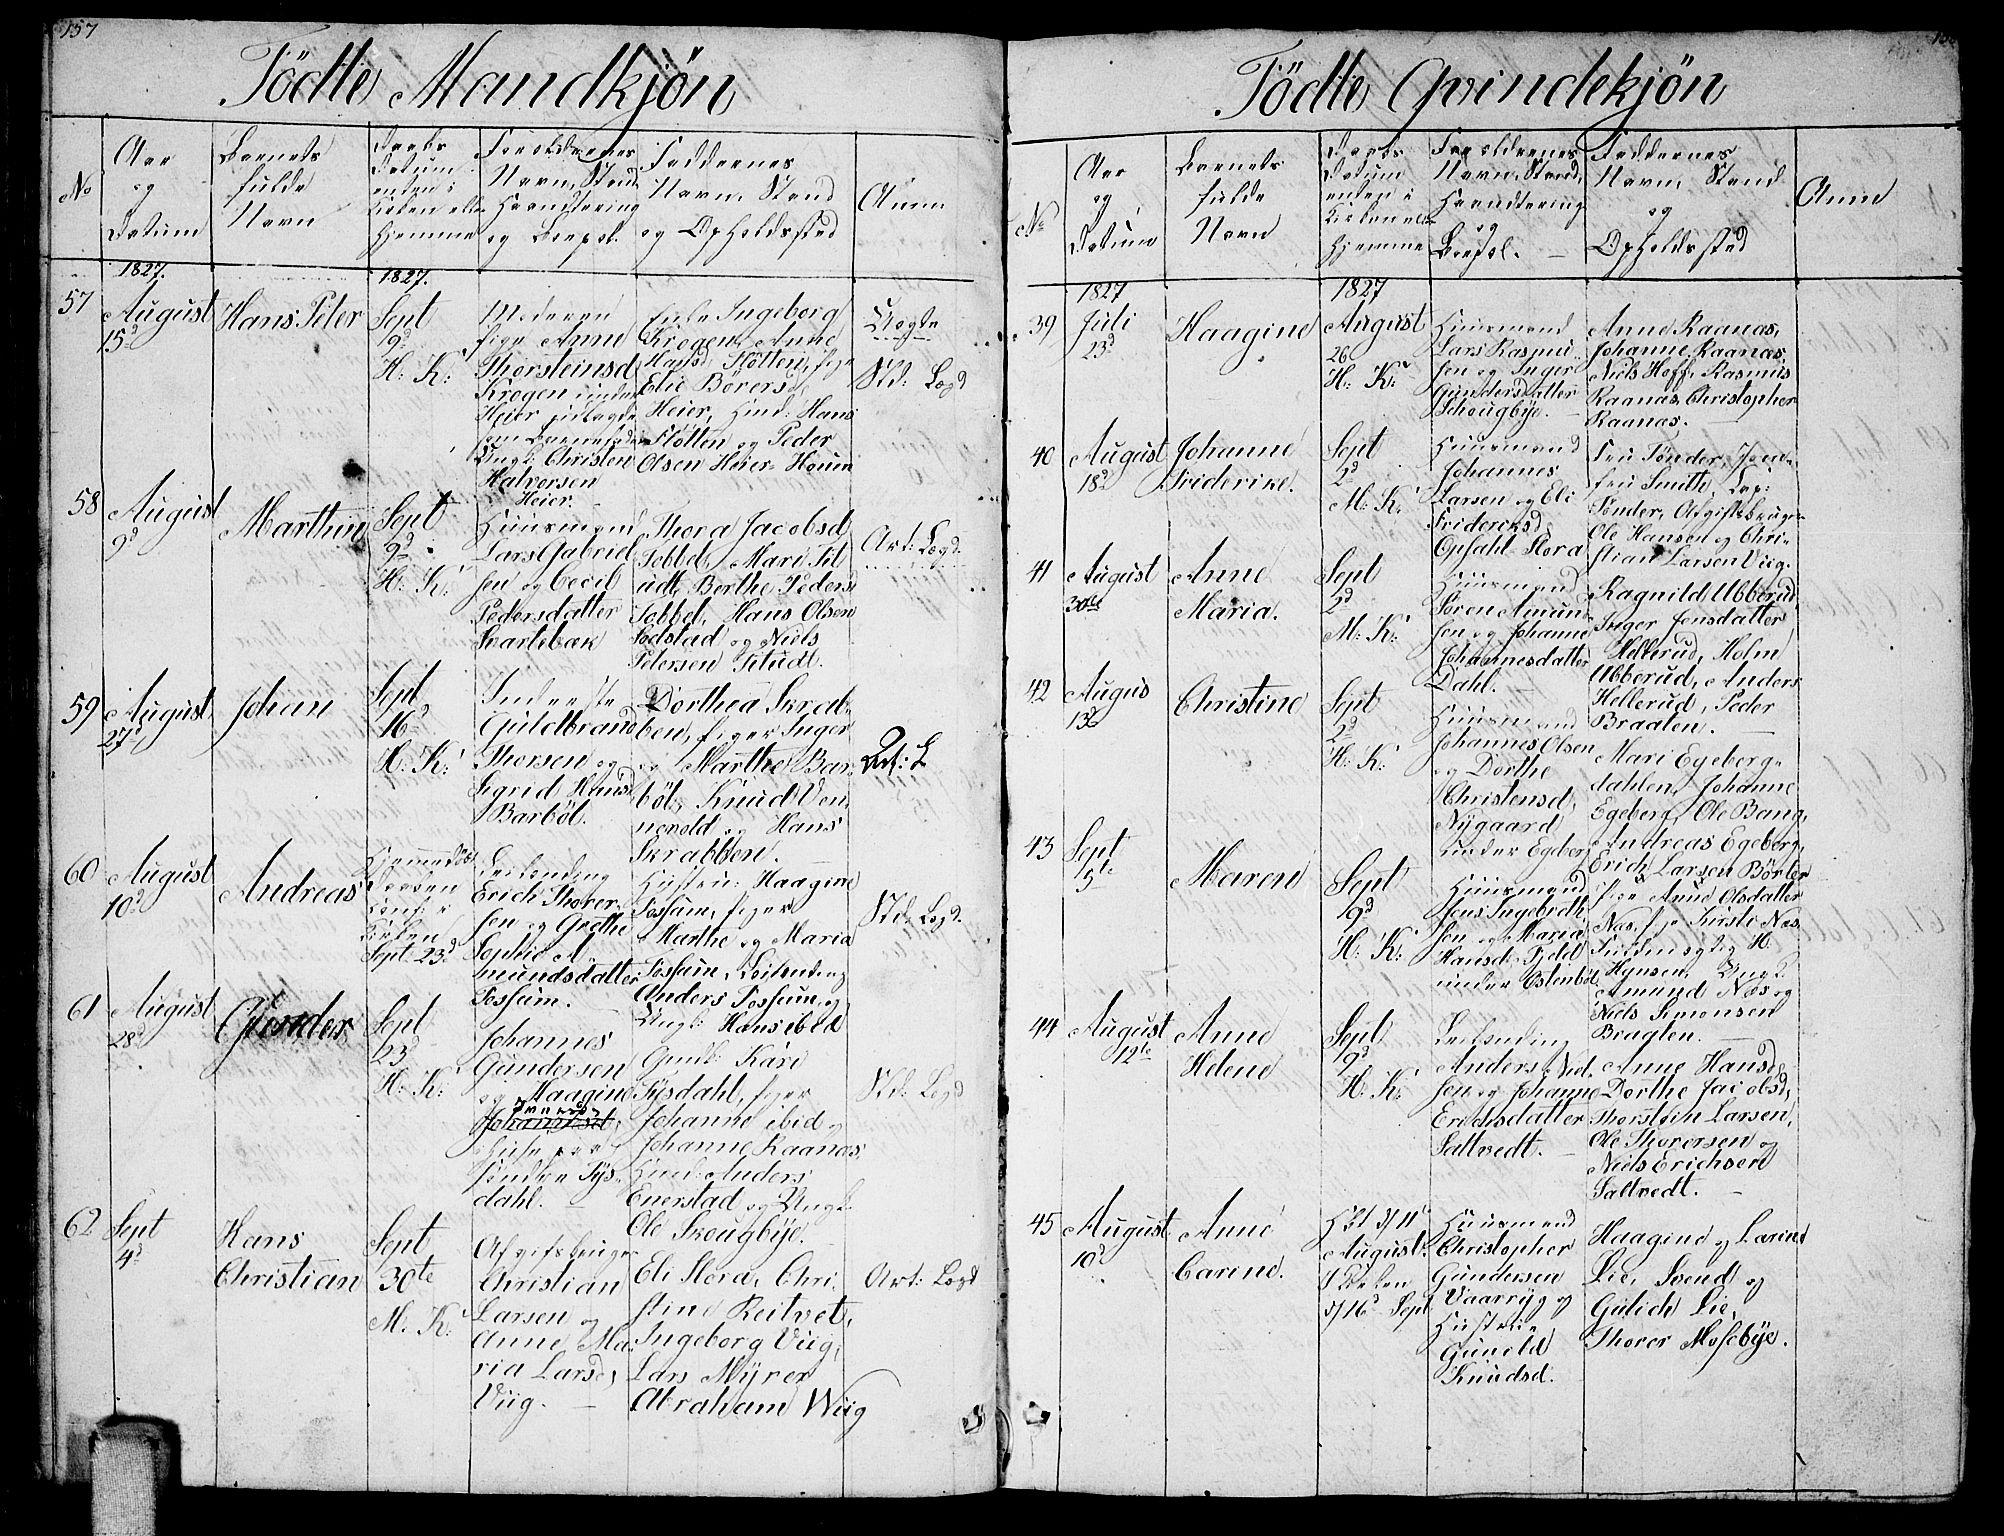 157
Födte Mandkjøn
No
Aar
og
Datum
Barnets
fulde
Navn
Daabs
Datum
enten i
Kirken eller
hjemme
Forældrenes
Navn, Stand
Haandtering
og Boepæl.
Faddernes
Navn, Stand
og Opholdssted
Anm
1827.
1827.
57
August
15d
Hans Peter
Sept
9d
H: K:
Moderen
pige Anne
Thorsteinsd
Krogen under
Heier udlagde
som Barnefader
Ungk: Christen
Halvorsen
Heier.
Enke Ingeborg
Krogen, Anne
Hansd Støtten, pige
Elie Børersd
Heier, Huusm: Hans
Støtten og Peder
Olsen Heier
Uægte
Std: Lægd
58
August
9d
Marthin
Sept
9d
H: K:
Huusmand
Lars Gabriel
sen og Cecil
Pedersdatter
Svartebæk
Thora Jacobsd
Sobbel, Mari Tit
udt, Berthe Peders
Sobbel, Hans Olsen
Sodstad og Niels
Petersen Titudt.
Art: Lægd.
59
August
27d
Johan
Sept
16d
H: K:
Inderste
Guldbrand
Thorsen og
Sigrid Hansd
Barbøl.
Dorthea Skrab-
ben, piger Inger
og Marthe Bar
bøl, Knud Ven
nevold og Hans
Skrabben.
Art: L
60
August
10d
Andreas
Hjemmedøbt
Daaben
Conf: i
Kirken
Sept 23d
Leilending
Erich Thorer
sen og Grethe
Sophie A
mundsdatter
Fossum.
Hustru: Haagine
Fossum, piger
Marthe og Maria
Fossum, Leilending
Anders Fossum, og
Ungk: Hans ibid
Std: Lægd.
61
August
28d
Gunder
Sept
23d
H: K:
Johannes
Gundersen
og Haagine
Johannesd
Huse paa
dahl.
Gmdk: Kari
Tysdahl, piger
Johanne ibid og
Johanne Raanas
Huusm: Anders
Enerstad og Ungk:
Ole Skougbye.
Std: Lægd
62
Sept
4d
Hans
Christian
Sept
30te
M: K:
Afgiftsbruger
Christian
Larsen og
Anne Ma
ria Larsd,
Viig.
Eli Stora, Chri
stine Reitvet,
Ingeborg Viig,
Lars Myrer
Abraham Wiig
Art: Lægd
Födte Qvindekjön
No
Aar
og
Datum
Barnets
fulde
Navn
Daabs
Datum
enten i
Kirken eller
hjemme
Forældrenes
Navn, Stand,
Haandtering
og
Boepæl.
Faddernes
Navn, Stand
og
Opholdssted
Anm
1827
1827
39
Juli
23d
Haagine
August
26
H: K:
Huusmand
Lars Rasmu
sen og Inger
Gundersdatter
Schougbye.
Anne Raanas,
Johanne Raanas,
Niels Hoff, Rasmus
Raanas, Christopher
Raanas.
40
August
18d
Johanne
Friderike.
Sept
2d
M: K:
Huusmand
Johannes
Larsen og Eli
Fridericksd
Opsahl Stora
Fru Tønder, Jom-
fru Smith, Cap:
Tønder, Afgiftsbruger
Ole Hansen og Chri-
stian Larsen Viig.
41
August
30te
Anne
Maria.
Sept
2d
M: K:
Huusmand
Søren Amund
sen og Johanne
Johannesdatter
Dahl.
Ragnild Ubberud,
Inger Jensdatter
Hellerud, Holm
Ubberud, Anders
Hellerud, Peder
Braaten.
42
Augus
13d
Christine
Sept
2d
H: K:
Huusmand
Johannes Olsen
og Dorthe
Christensd,
Nygaard
under Egeberg
Mari Egeberg-
dahlen, Johanne
Egeberg, Ole Bang,
Andreas Egeberg,
Erich Larsen Börter
43
Sept
5te
Maren
Sept
9d
H: K:
Huusmand
Jens Ingebreth
sen og Maria
Hansd: Fjeld
under Østenbøl
pige Anne Olsdatter
Næs, pige Kirsti Næs,
Hynsen, Ungk:
Amund Næs og
Niels Simonsen
Bragten.
44
August
12te
Anne
Helene
Sept
9d
H: K:
Leilending
Anders Niel
sen og Johanne
Erichsdatter
Saltvedt.
Anne Hansd,
Dorthe Jacobsd,
Thorstein Larsen,
Ole Thorersen og
Niels Erichsen
Saltvedt.
45
August
10d
Anne
Carine.
August.
I Kirken
d/16d Sept
Huusmand
Christopher
Gundersen
Vaaryg og
Hustrue
Gunild
Knudsd.
Haagine og Larine
Lie, Svend og
Gulich Lie,
Thorer Mosebye.